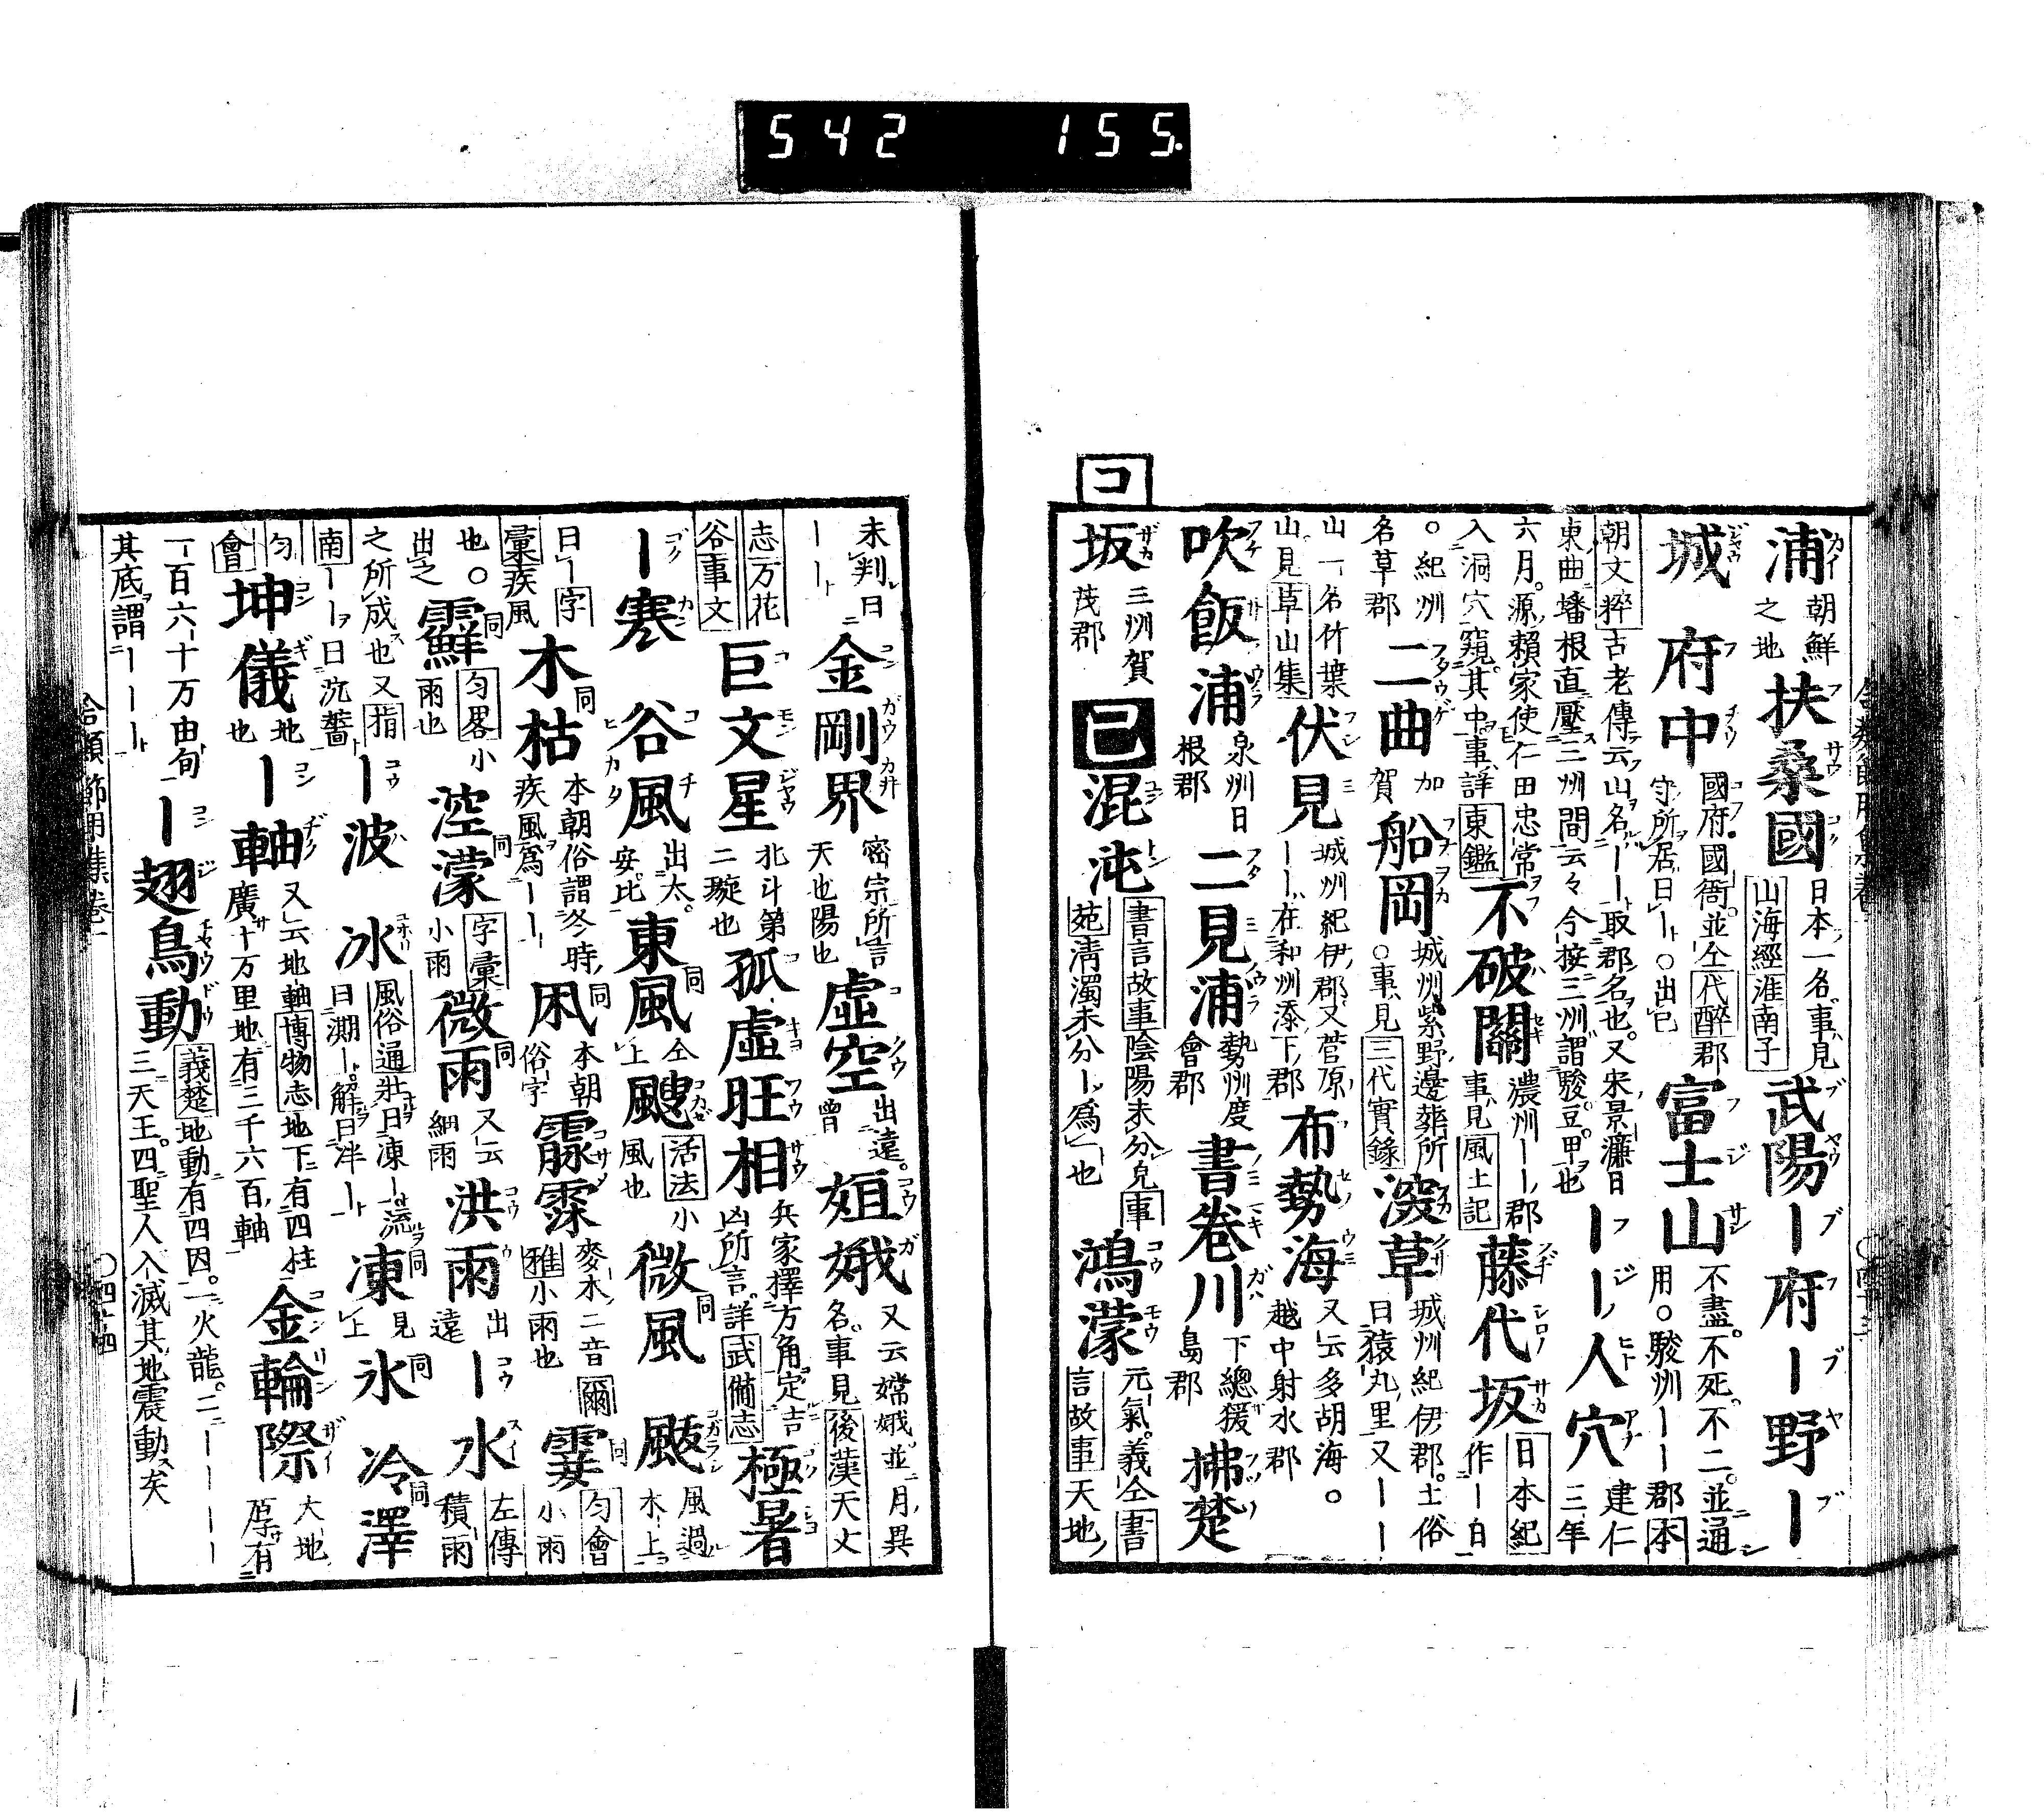 542 155.
コ
浦 朝鮮之地 扶桑國 日本一名事見山海經淮南子 武陽 ー府 ー野ー
城 府中 國府國衙並仝代醉郡守所居曰ーー○出已 富士山 不盡不死不二並通用○駿州ーー郡本
朝文粹古老傳云山名ーー取郡名也又宋景濂日東曲蟠根直壓三州間云々今按三州謂駿豆甲也 ーーノ人穴 建仁三年
六月源賴家使仁田忠常入洞穴窺其中事詳東鑑 不破關 濃州ーー郡事見風土記 藤代坂 日本紀作ー白
○紀州名草郡 二曲 加賀 船岡 城州紫野邊葬所○事見三代實錄 深草 城州紀伊郡土俗曰猿丸里又ーー
山一名竹葉山見草山集 伏見 城州紀伊郡又菅原ーー在和州添下郡 布勢海 又云多胡海越中射水郡
吹飯浦 泉州日根郡 二見浦 勢州度會郡 書卷川 下總猨島郡 拂楚
坂 三州賀茂郡 己 混沌 書言故事陰陽未分皃事苑淸濁未分ー爲ー也 鴻濛 元氣義仝書言故事天地
未判曰ーー 金剛界 密宗所言天也陽也 虛空 出遠曾 姮娥 又云嫦娥並月異名事見後漢天文
志万花谷事文 巨文星 北斗第二璇也 孤虛旺相 兵家擇方角定吉凶所言詳武備志 極暑
ー寒 谷風 出太安比 東風 仝上 颼 活法小風也 微風 颰 風過木上
曰ー字彙疾風 木枯 本朝俗謂冬時疾風爲ーー 凩 本朝俗字 霢霂 麥木二音爾雅小雨也 霎 匀會小雨
也○出之 䨘 匀畧小雨也 涳濛 字彙小雨 微雨 又云細雨 洪雨 出遠 ー水 左傳積雨
之所成也又指南ーー曰沆瀣 ー波 冰 風俗通壯曰凍ー流曰澌ー解曰泮ー 凍 見上 氷 冷澤
匀會 坤儀 地也 ー軸 又云地軸博物志地下有四柱廣十万里地有三千六百軸 金輪際 大地底有
一百六十万由旬其底謂ーーー ー翅鳥動 義楚地動有四因一火龍二ーーー三天王四聖人入滅其地震動矣
合類節用集卷一 ○四十四